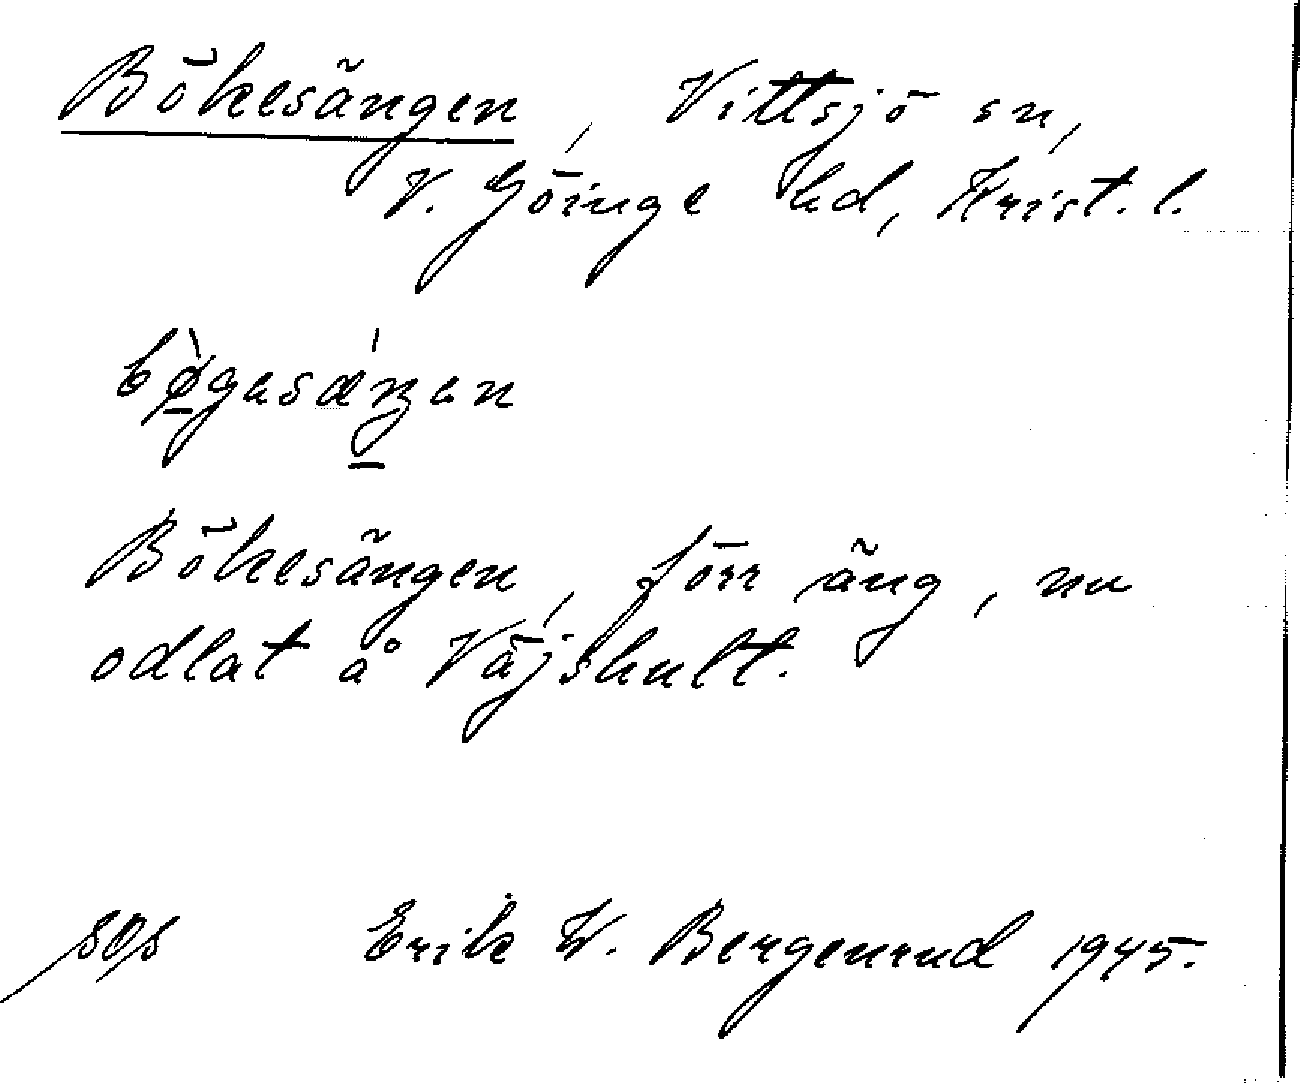 Bökesängen, Vittsjö sn,
V. Göinge hd, Krist. l.
bø̀gesǽŋen
Bökesängen, förr äng, nu
odlat å Väjshult.
Erik W. Bergenrud 1945.